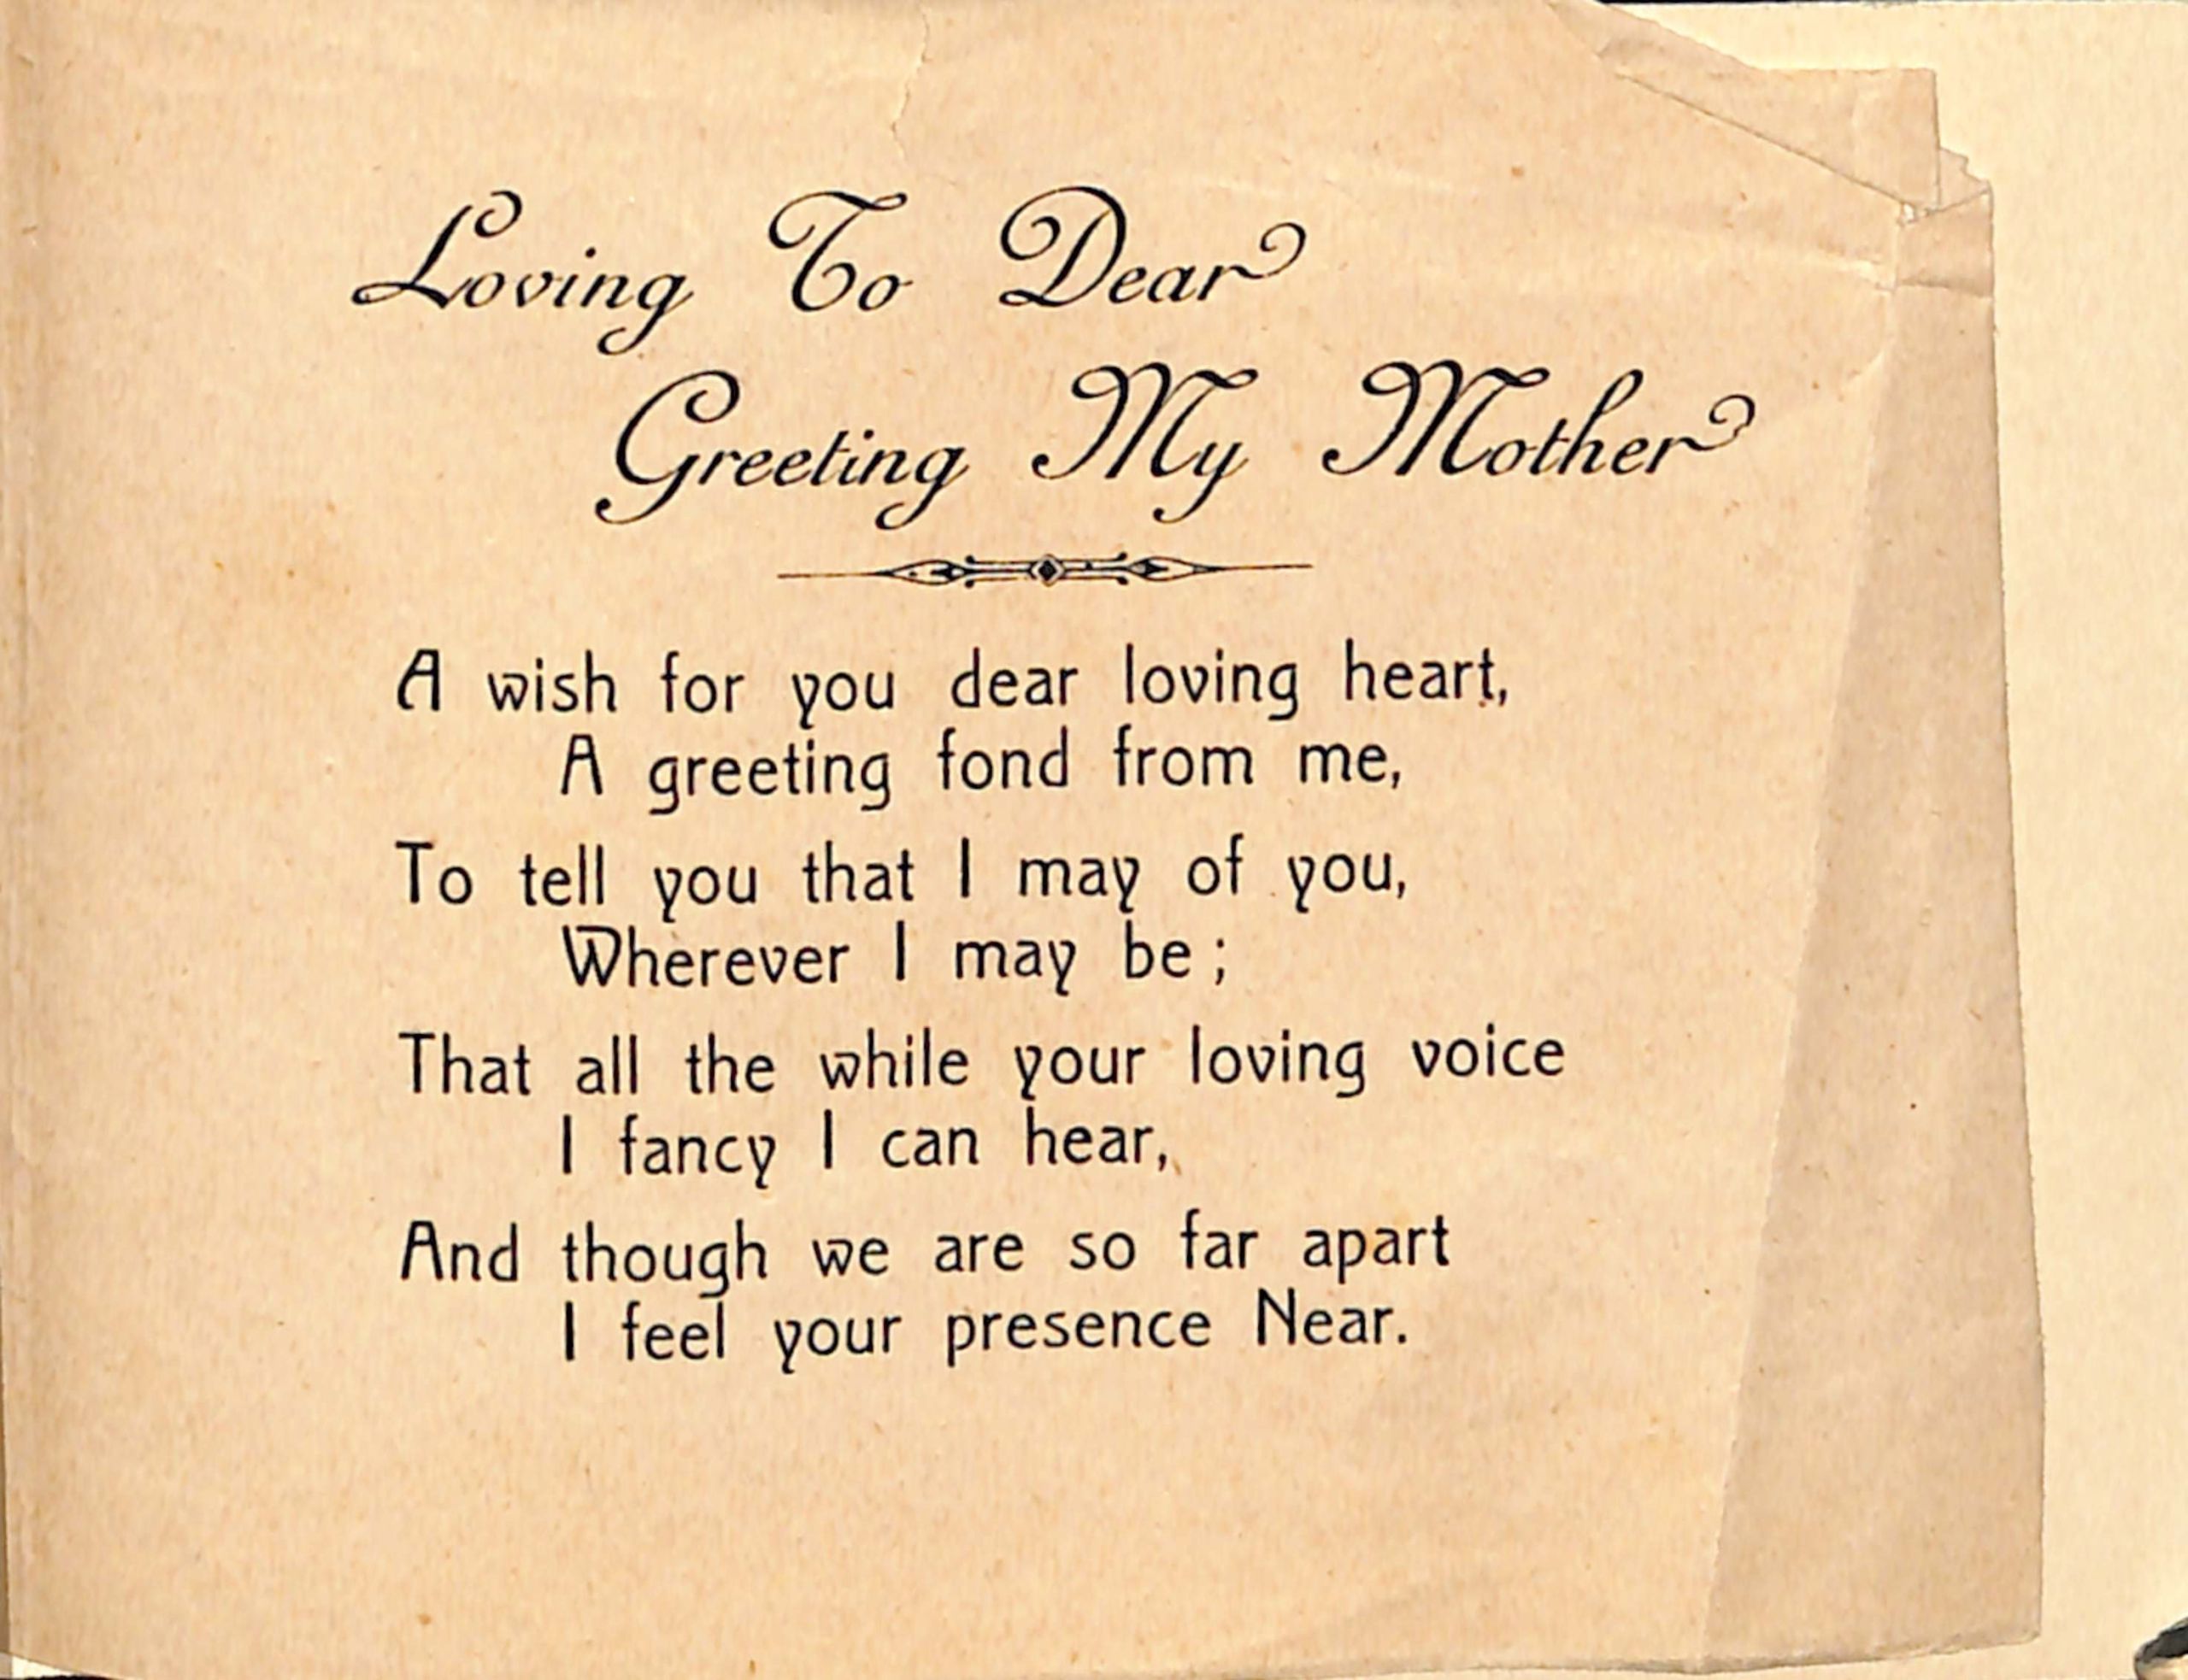 Loving To Dear
Greeting My Mother
A wish for you dear loving heart,
A greeting fond from me,
To tell you that I may of you,
Wherever I may be ;
That all the while your loving voice
I fancy I can hear,
And though we are so far apart
I feel your presence Near.